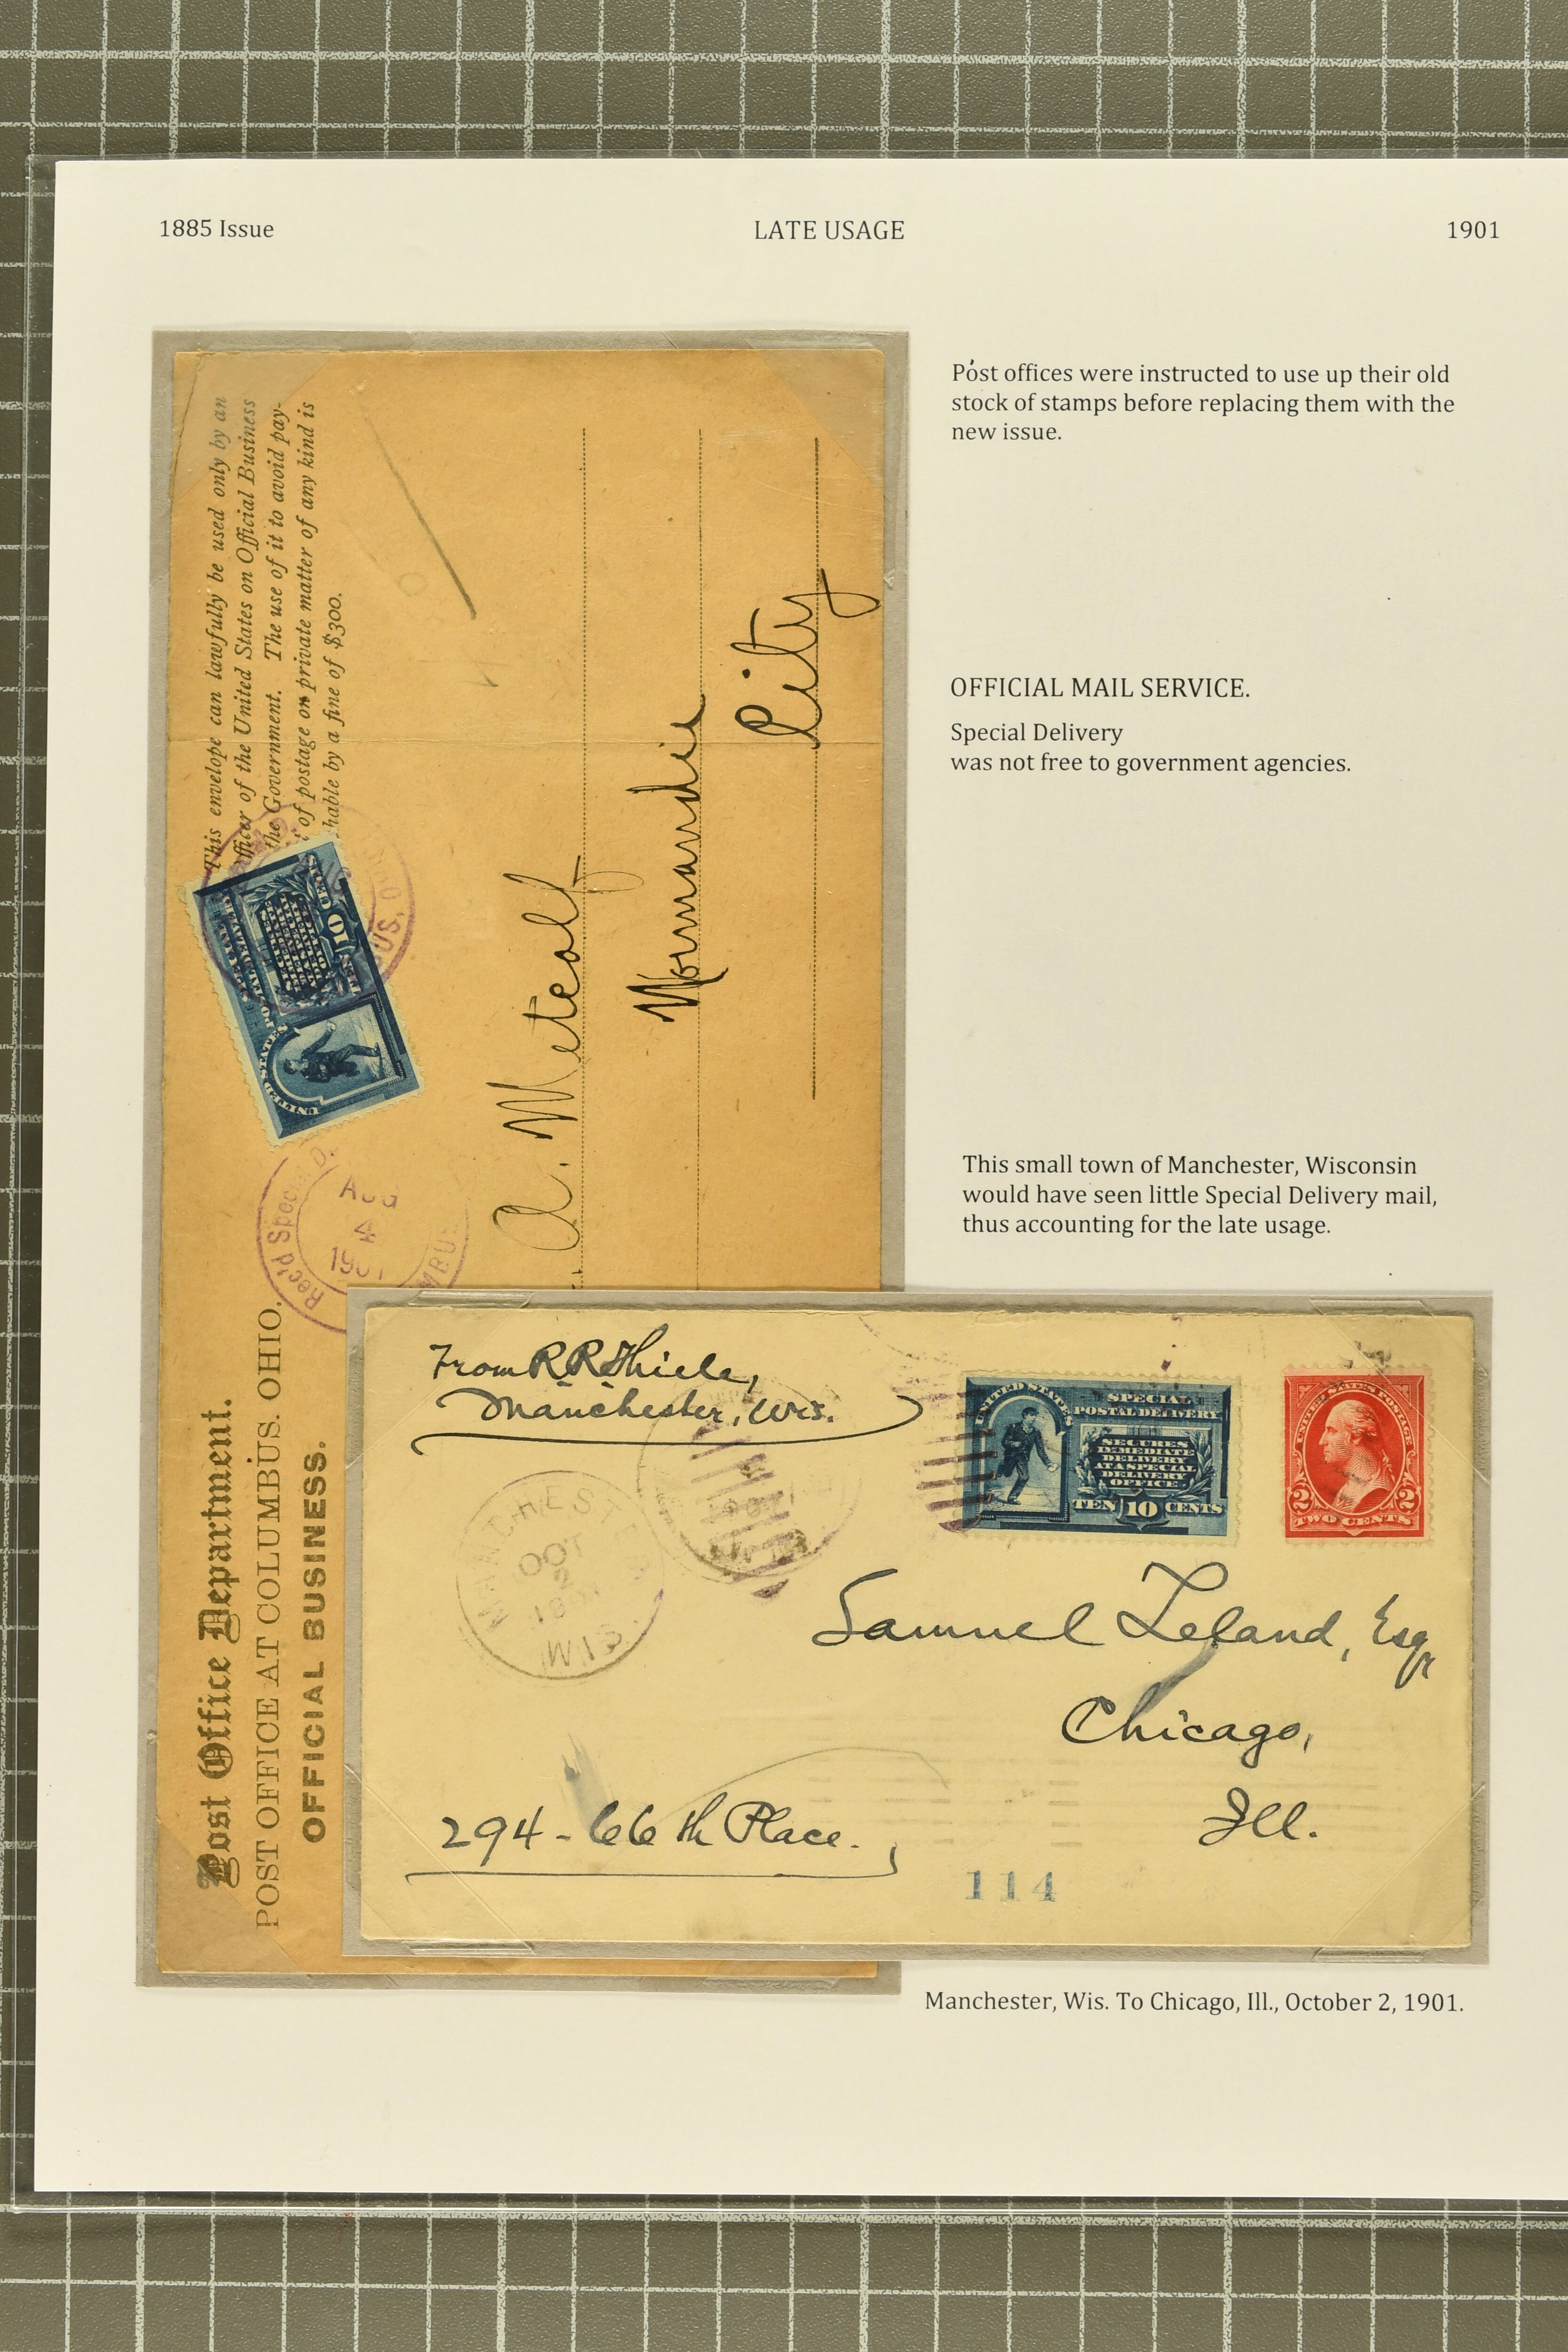 1885 Issue
LATE USAGE
1901
Post offices were instructed to use up their old
stock of stamps before replacing them with the
new issue.
OFFICIAL MAIL SERVICE.
Special Delivery
was not free to government agencies.
This small town of Manchester, Wisconsin
would have seen little Special Delivery mail,
thus accounting for the late usage.
Post Office Department.
POST OFFICE AT COLUMBUS. OHIO.
OFFICIAL BUSINESS.
This envelope can lawfully be used only by an
officer of the United States on Official Business
the Government. The use of it to avoid pay-
of postage on private matter of any kind is
hable by a fine of $300.
UNITED STATES
10
Rec'd Special D
AUG
4
1901
MBUS
BUS, O
A. Metcalf
Normandie
City
From R R Thiele,
Manchester, Wis.
MANCHEST
OCT
2
WIS.
UNITED STATES
SPECIAL
POSTAL DELIVERY
SECURES
IMMEDIATE
DELIVERY
AT A SPECIAL
DELIVERY
OFFICE
TEN 10 CENTS
UNITED STATES POSTAGE
2 2
TWO CENTS
Samuel Leland, Esqr
Chicago,
Ill.
294 - 66th Place.
114
Manchester, Wis. To Chicago, Ill., October 2, 1901.